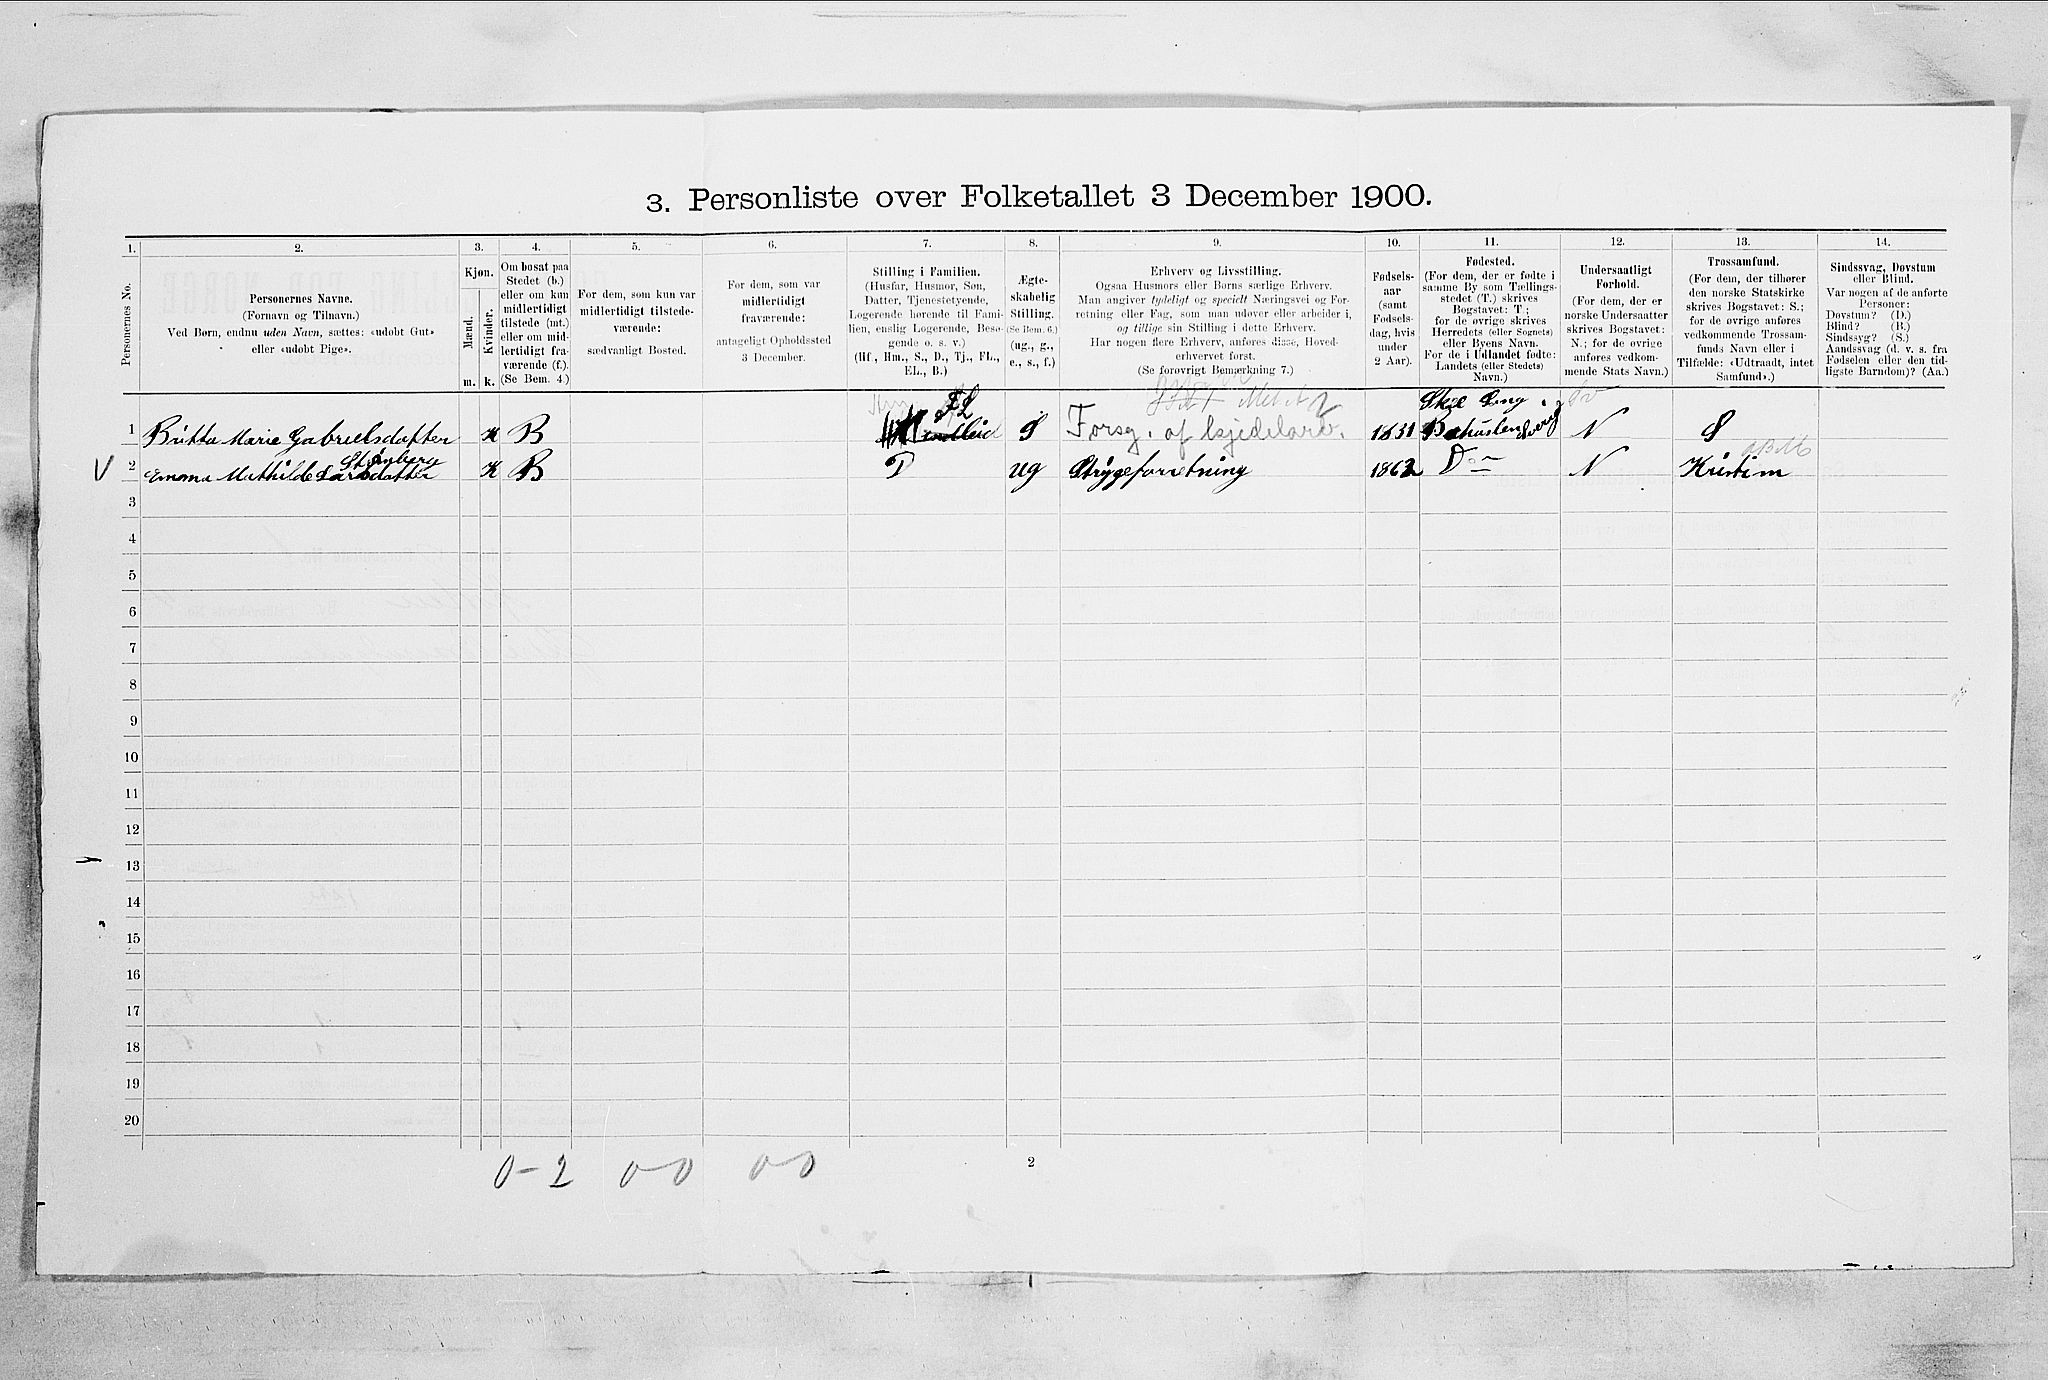 3. Personliste over Folketallet 3 December 1900.
1. 2. 3. 4. 5. 6. 7. 8. 9. 10. 11. 12. 13. 14.
Personernes No.
Personernes Navne.
(Fornavn og Tilnavn.)
Ved Børn, endnu uden Navn, sættes: «udøbt Gut»
eller «udøbt Pige».
Kjøn.
Mænd.
Kvinder.
m. k.
Om bosat paa
Stedet (b.)
eller om kun
midlertidigt
tilstede (mt.)
eller om mid-
lertidigt fra-
værende (f.).
(Se Bem. 4.)
For dem, som kun var
midlertidigt tilstede-
værende:
sædvanligt Bosted.
For dem, som var
midlertidigt
fraværende:
antageligt Opholdssted
3 December.
Stilling i Familien.
(Husfar, Husmor, Søn,
Datter, Tjenestetyende,
Logerende hørende til Fami-
lien, enslig Logerende, Besø-
gende o. s. v.)
(Hf., Hm., S., D., Tj., FL.,
EL., B.)
Ægte-
skabelig
Stilling.
(Se Bem. 6.)
(ug., g.,
e., s., f.)
Erhverv og Livsstilling.
Ogsaa Husmors eller Børns særlige Erhverv.
Man angiver tydeligt og specielt Næringsvei og For-
retning eller Fag, som man udøver eller arbeider i,
og tillige sin Stilling i dette Erhverv.
Har nogen flere Erhverv, anføres disse, Hoved-
erhvervet først.
(Se forøvrigt Bemærkning 7.)
Fødsels-
aar
(samt
Fødsels-
dag, hvis
under
2 Aar).
Fødested.
(For dem, der er fødte i
samme By som Tællings-
stedet (T.) skrives
Bogstavet: T.;
for de øvrige skrives
Herredets (eller Sognets)
eller Byens Navn.
For de i Udlandet fødte:
Landets (eller Stedets)
Navn.)
Undersaatligt
Forhold.
(For dem, der er
norske Undersaatter
skrives Bogstavet:
N.; for de øvrige
anføres vedkom-
mende Stats Navn.)
Trossamfund.
(For dem, der tilhører
den norske Statskirke
skrives Bogstavet: S.;
for de øvrige anføres
vedkommende Trossam-
funds Navn eller i
Tilfælde: «Udtraadt, intet
Samfund».)
Sindssvag, Døvstum
eller Blind.
Var nogen af de anførte
Personer:
Døvstum? (D.)
Blind? (B.)
Sindssyg? (S.)
Aandssvag (d. v. s. fra
Fødselen eller den tid-
ligste Barndom)? (Aa.)
FL
1 Britta Marie Gabrielsdatter K B S 1831 N S
Stenberg
V 2 Emma Mathilde Larsdatter K B D ug Strygeforretning 1862 Do N
3
4
5
6
7
8
9
10
11
12
13
14
15
16
17
18
19
20
0-2 0-0 0-0 2